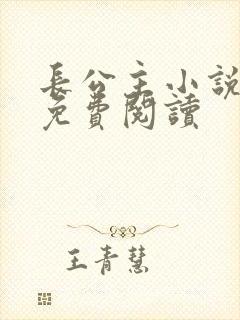 長公主小說
免費閱讀
王青慧